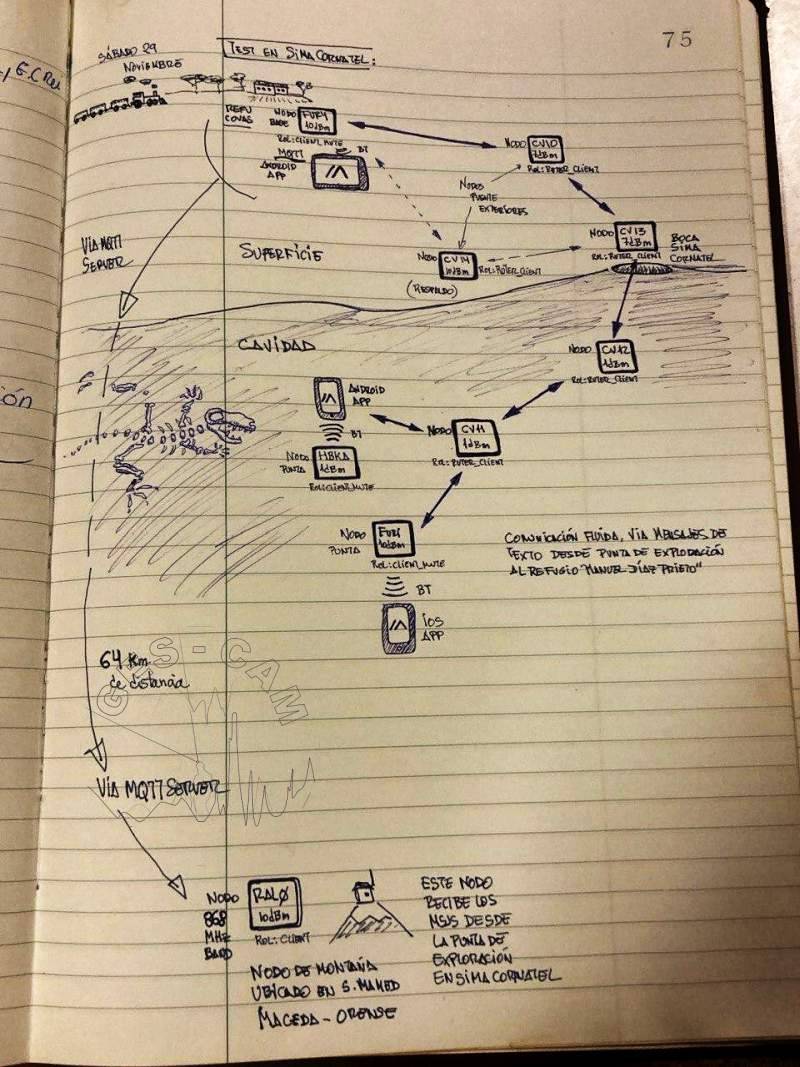 75
SÁBADO 29
NOVIEMBRE
TEST EN SIMA CORNATEL:
REFU
COVAS
NODO
BASE
FUR1
10dBm
ROL:CLIENT_MUTE
MQTT
ANDROID
APP
BT
NODO
CV10
7dBm
ROL: RUTER_CLIENT
NODOS
PUENTE
EXTERIORES
NODO
CV13
7dBm
ROL: RUTER_CLIENT
BOCA
SIMA
CORNATEL
NODO
CV14
10dBm
ROL: RUTER_CLIENT
(RESPALDO)
VÍA MQTT
SERVER
SUPERFICIE
CAVIDAD
NODO
CV12
1dBm
ROL: RUTER_CLIENT
ANDROID
APP
BT
NODO
PUNTA
HBKA
1dBm
ROL:CLIENT_MUTE
NODO
CV11
1dBm
ROL: RUTER_CLIENT
NODO
PUNTA
10dBm
ROL: CLIENT_MUTE
BT
iOS
APP
COMUNICACIÓN FLUIDA, VÍA MENSAJES DE
TEXTO DESDE PUNTA DE EXPLORACIÓN
AL REFUGIO "MANUEL DÍAZ PRIETO"
64 Km
de distancia
GES-CAM
VÍA MQTT SERVER
NODO
868
MHz
BAND
RALØ
10dBm
ROL: CLIENT
NODO DE MONTAÑA
UBICADO EN S. MAMED
MACEDA - ORENSE
ESTE NODO
RECIBE LOS
MSJS DESDE
LA PUNTA DE
EXPLORACIÓN
EN SIMA CORNATEL